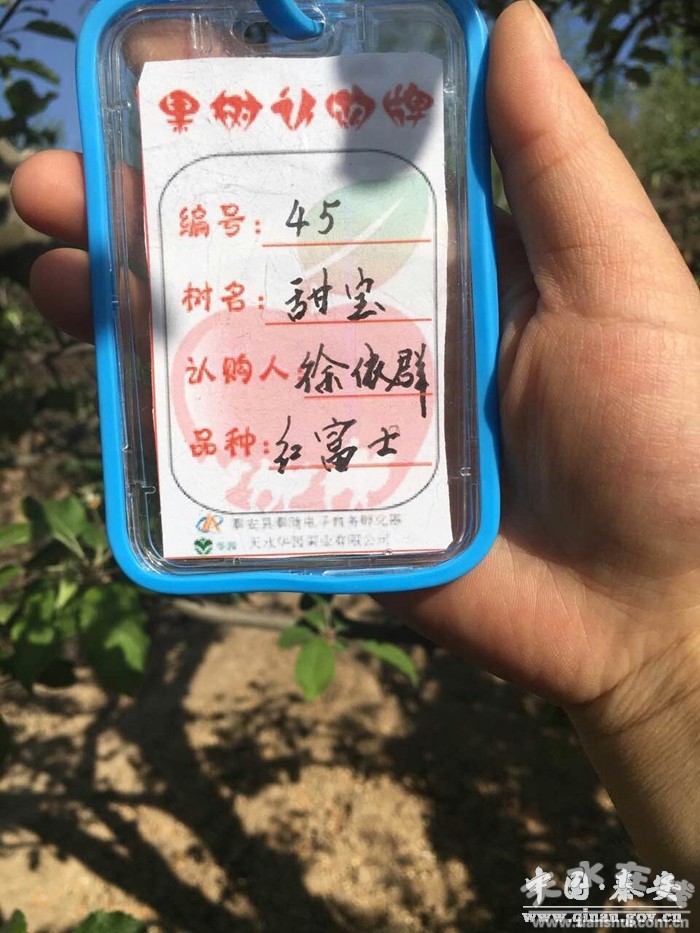 果树认购牌
编号: 45
树名: 甜宝
认购人: 徐依群
品种: 红富士
秦安县秦陇电子商务孵化器
华园 天水华园果业有限公司
中国·秦安
www.qinan.gov.cn